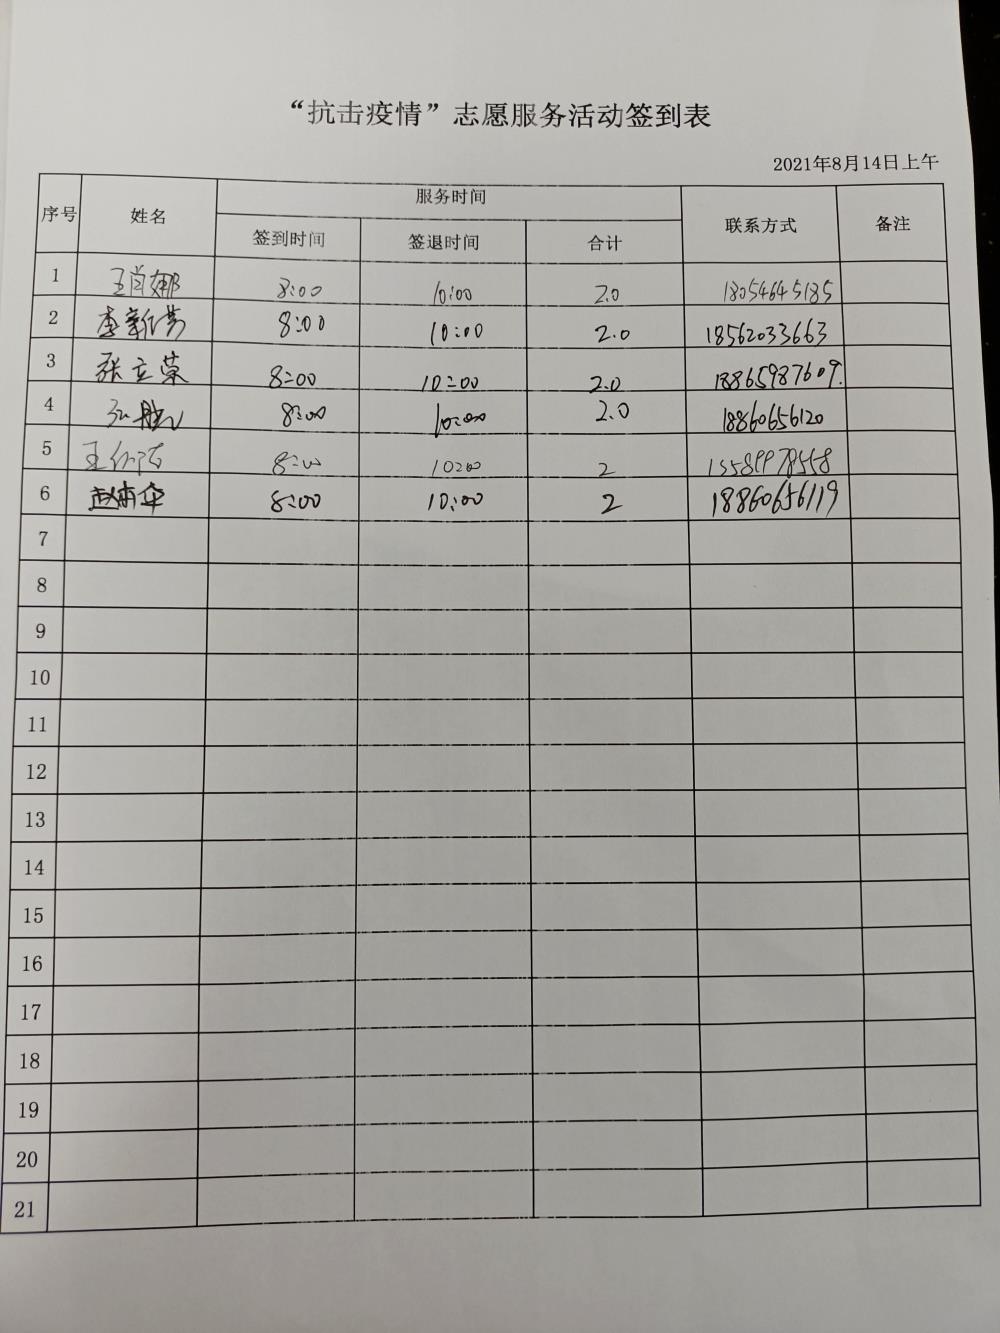 “抗击疫情”志愿服务活动签到表
2021年8月14日上午
序号 姓名 服务时间 联系方式 备注
签到时间 签退时间 合计
1 王肖娜 8:00 10:00 2.0 18054645185
2 李新芳 8:00 10:00 2.0 18562033663
3 张立荣 8:00 10:00 2.0 18865987609.
4 8:00 10:00 2.0 18860656120
5 王 8:00 10:00 2
6 赵 华 8:00 10:00 2 18860656119
7
8
9
10
11
12
13
14
15
16
17
18
19
20
21